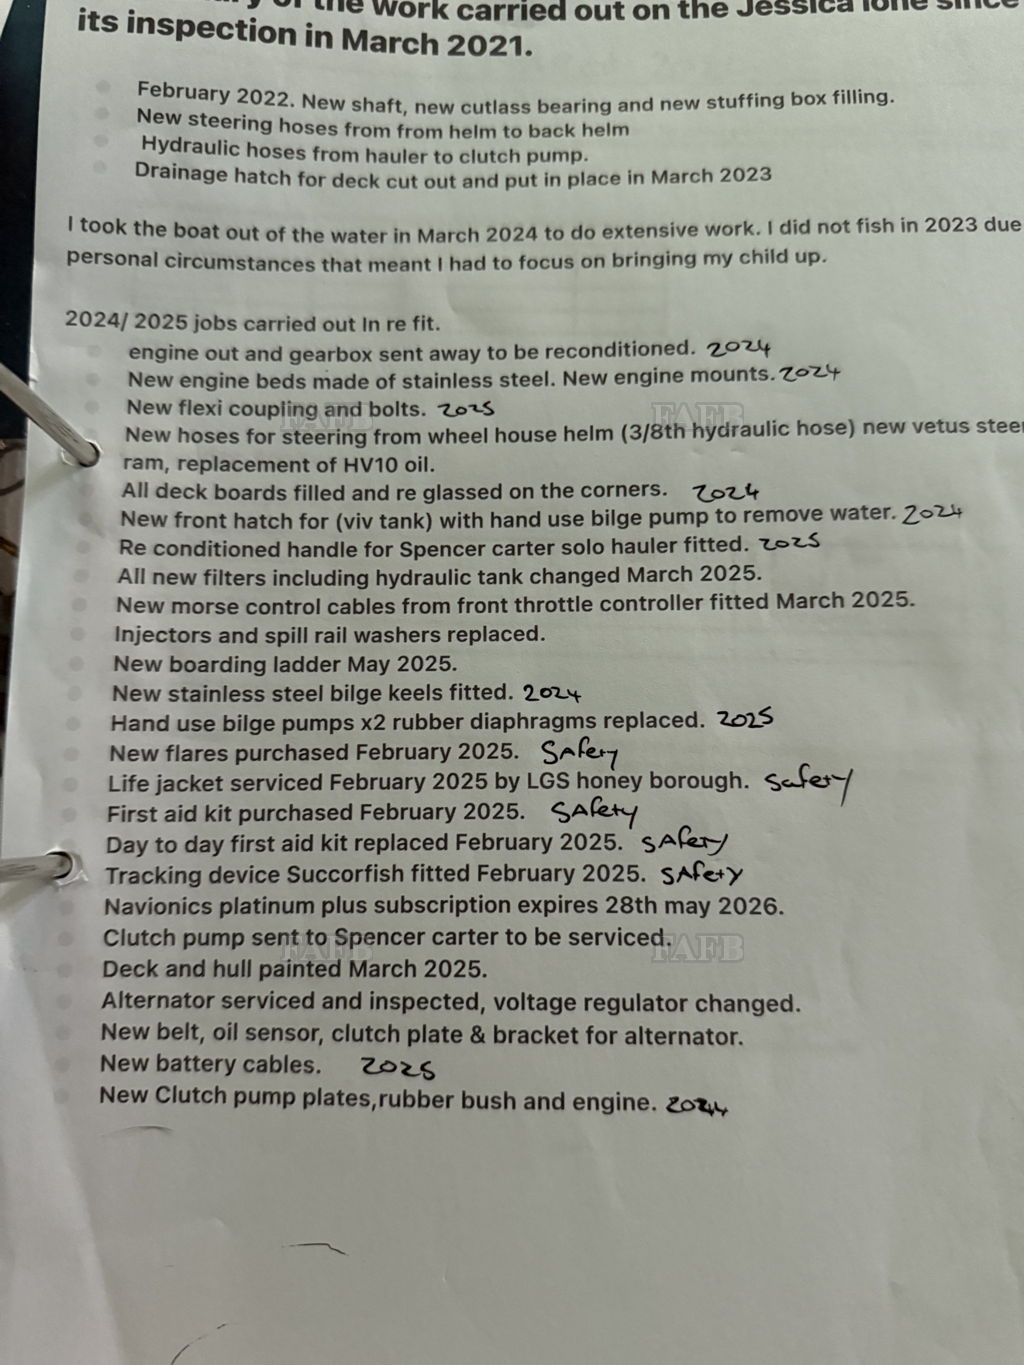 of the work carried out on the Jessica Ione since
its inspection in March 2021.
February 2022. New shaft, new cutlass bearing and new stuffing box filling.
New steering hoses from from helm to back helm
Hydraulic hoses from hauler to clutch pump.
Drainage hatch for deck cut out and put in place in March 2023
I took the boat out of the water in March 2024 to do extensive work. I did not fish in 2023 due
personal circumstances that meant I had to focus on bringing my child up.
2024/ 2025 jobs carried out In re fit.
engine out and gearbox sent away to be reconditioned. 2024
New engine beds made of stainless steel. New engine mounts. 2024
New flexi coupling and bolts. 2025
FAFB FAFB
New hoses for steering from wheel house helm (3/8th hydraulic hose) new vetus steer
ram, replacement of HV10 oil.
All deck boards filled and re glassed on the corners. 2024
New front hatch for (viv tank) with hand use bilge pump to remove water. 2024
Re conditioned handle for Spencer carter solo hauler fitted. 2025
All new filters including hydraulic tank changed March 2025.
New morse control cables from front throttle controller fitted March 2025.
Injectors and spill rail washers replaced.
New boarding ladder May 2025.
New stainless steel bilge keels fitted. 2024
Hand use bilge pumps x2 rubber diaphragms replaced. 2025
New flares purchased February 2025. SAfety
Life jacket serviced February 2025 by LGS honey borough. Safety
First aid kit purchased February 2025. SAfety
Day to day first aid kit replaced February 2025. SAfety
Tracking device Succorfish fitted February 2025. SAfety
Navionics platinum plus subscription expires 28th may 2026.
Clutch pump sent to Spencer carter to be serviced.
FAFB FAFB
Deck and hull painted March 2025.
Alternator serviced and inspected, voltage regulator changed.
New belt, oil sensor, clutch plate & bracket for alternator.
New battery cables. 2025
New Clutch pump plates,rubber bush and engine. 2024